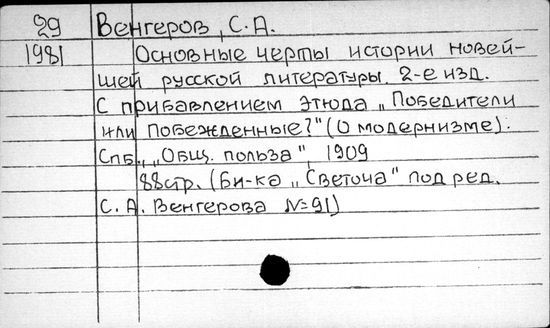 29 Венгеров, С.А.
1981 Основные черты истории новей-
шей русской литературы. 2-е изд.
С прибавлением этюда „Победители
или побежденные?" (О модернизме).
Спб., „Общ. польза", 1909
88стр. (Би-ка „Светоча" под ред.
С.А. Венгерова №91)